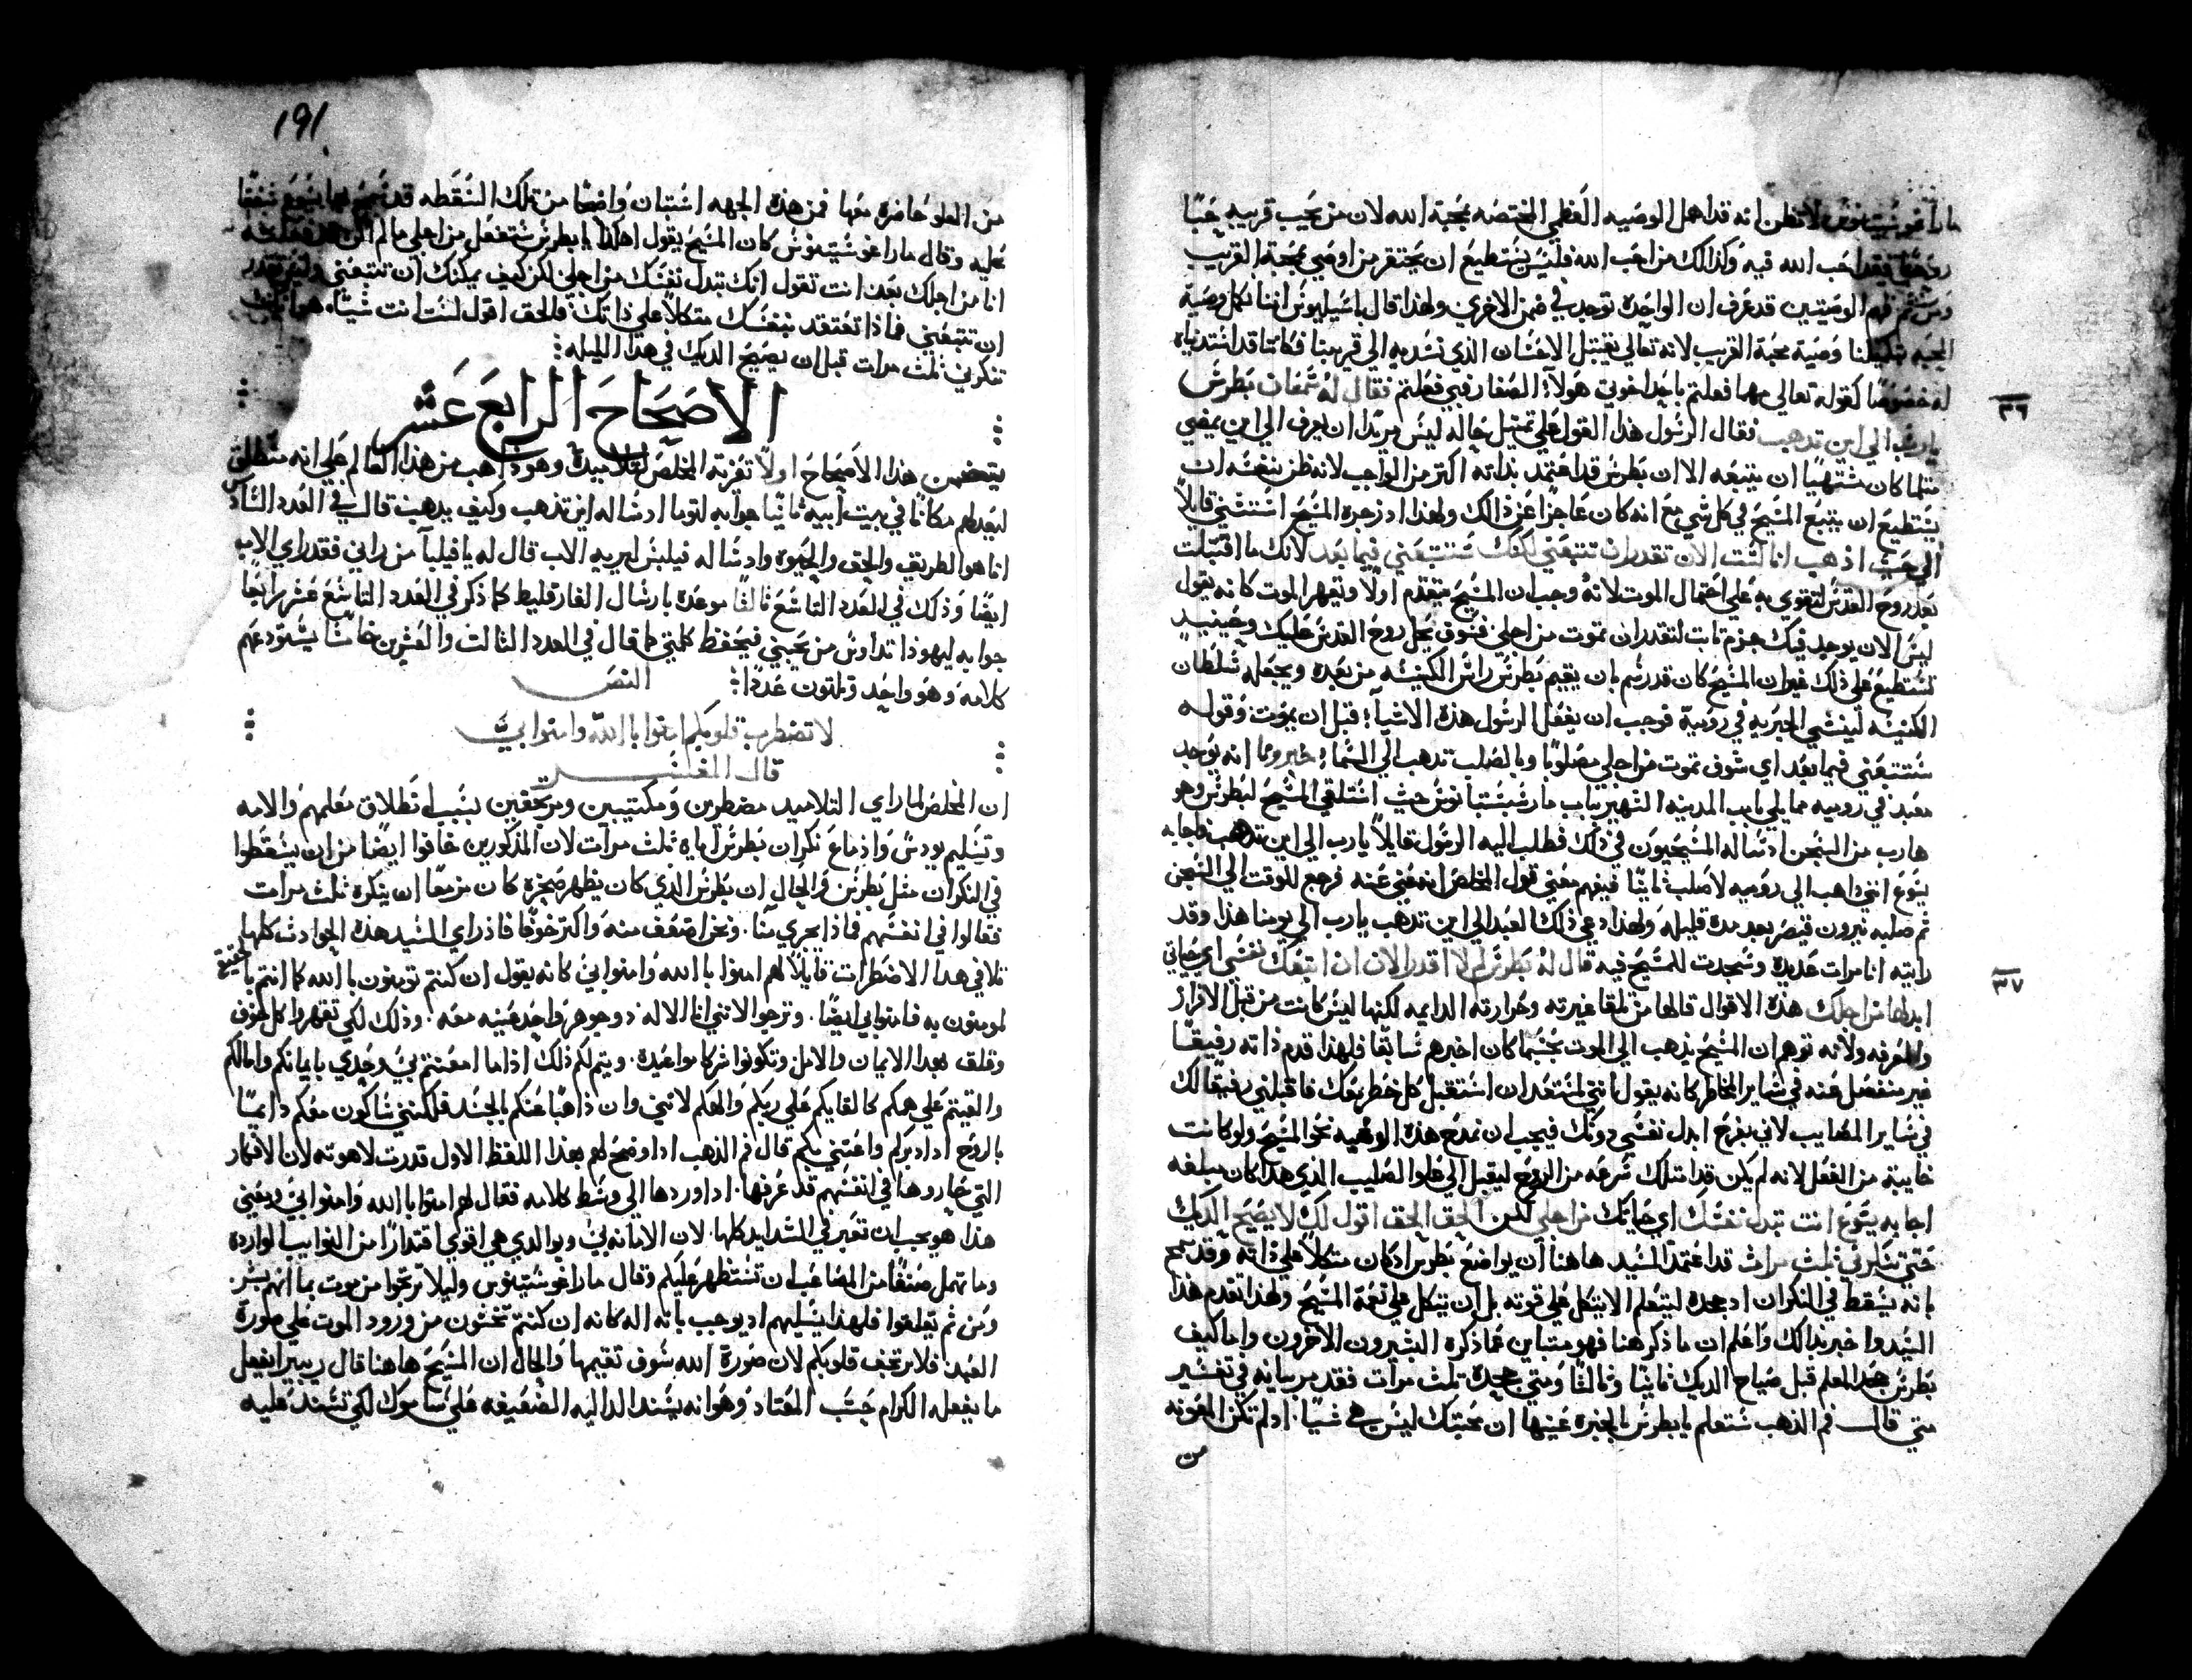 مارا غوشتينوش لا تظن انه قد اهمل الوصيه العظمي المختصه بمحبة الله لان من يحب قريبه حبًا
روحيًا فقد احب الله فيه وكذالك من احب الله فليس يستطيع ان يحتقر من اوصي بمحبة القريب
ومن ثم فهم الوصيتين قد عرف ان الواحده توجد في ضمن الاخري ولهذا قال باسيليوس اننا نكمل وصية
المحبه بتكميلنا وصية محبة القريب لانه تعالي يقتبل الاحسان الذي نسديه الي قريبنا فكاننا قد اسديناه
له خصوصًا كقوله تعالي مهما فعلتم باحد اخوتي هولاء الصغار فبي فعلتم فقال له شمعان بطرس
٣٦
يارب الي اين تذهب فقال الرسول هذا القول علي تمثيل حاله ليس مريدًا ان يعرف الي اين يمضي
مثلما كان مشتهيًا ان يتبعه الا ان بطرس قد اعتمد بذاته اكثر من الواجب لانه ظن بنفسه ان
يستطيع ان يتبع المسيح في كل شي مع انه كان عاجزًا عن ذالك ولهذا اذ زجره المسيح استثني قايلاً
الي حيث اذهب انا لست الان تقدر ان تتبعني لكنك ستتبعني فيما بعد لانك ما اقتبلت
بعد روح القدس لتقوي به علي احتمال الموت لانه وجب ان المسيح يتقدم اولا ويقهر الموت كانه يقول
ليس الان يوجد فيك حزم ثابت لتقدر ان تموت من اجلي فسوف يحل روح القدس عليك وحينيذٍ
تستطيع علي ذلك فبما ان المسيح كان قد رسم بان يقيم بطرس راس الكنيسه من بعده ويجعله سلطان
الكنيسه لينشي الحبريه في روميه فوجب ان يفعل الرسول هذه الاشياء قبل ان يموت وقوله
ستتبعني فيما بعد اي سوف تموت من اجلي مصلوبًا وبالصلب تذهب الي السماء انه توجد
معبد في روميه مما يلي باب المدينه الشهير بباب مار سبستيانوس حيث استلقي المسيح لبطرس وهو
هارب من السجن اد سأله المسيحيون في ذلك فطلب اليه الرسول قايلاً يارب الي اين تذهب فاجابه
يسوع انني ذاهب الي روميه لاصلب ثانيًا ففهم معني قول المخلص انه عني عنه فرجع للوقت الي السجن
ثم صلبه نيرون قيصر بعد مدة قليله ولهذا دعي ذلك المعبد الي اين تذهب يارب الي يومنا هذا وقد
رايته انا مرات عديده وسجدت للمسيح فيه قال له بطرس لم لا اقدر الان ان اتبعك نفسي اي حياتي
٣٧
ابدلها من اجلك هذه الاقوال قالها من تلقا غيرته وحرارته الدايمه لكنها ليس كانت من قبل الاقرار
والمعرفه ولانه توهم ان المسيح يذهب الي الموت بحسبما كان اخبرهم سابقًا فلهذا قدم ذاته رفيقًا
غير منفصل عنه في ساير المخاطر كانه يقول انني لمستعد ان استقبل كل خطر معك فاقبلني رفيقًا لك
في ساير المصايب لاني بفرح ابدل نفسي دونك فيجب ان نمدح هذه الوهبه نحو المسيح ولو كانت
خايبة من الفعل لانه لم يكن قد امتلك سرعه من الروح ليقبل الي علو الصليب الذي هذا كان مبلغه
اجابه يسوع انت تبدل نفسك اي حياتك من اجلي لكن الحق الحق اقول لك لا يصيح الديك
حتي تنكرني ثلث مرات قد اعتمد السيد هاهنا ان يواضع بطرس اد كان متكلاً علي ذاته وقد سمح
بانه يسقط في النكران اد جحده ليتعلم الا يتكل علي قوته بل ان يتكل علي نعمة المسيح ولهذا تقدم هذا
السيد واخبر بذالك واعلم ان ما ذكر هنا فهو متباين عما ذكره البشيرون الاخرون واما كيف
بطرس جحد المعلم قبل صياح الديك ثانيًا وثالثًا ومتي جحده ثلث مرات فقد مر بيانه في تفسير
متي قال فم الذهب ستعلم يا بطرس بالخبره عينها ان محبتك ليس هي شيًا اد لم تكن المعونه
من
191
من العلو حاضره معها فمن هذه الجهه استبان واضحًا من تلك السقطه قد سمح بها يسوع شفقًا
عليه وقال مارا غوشتينوش كان المسيح يقول اهكذا يا بطرس ستفعل من اجلي ما لم اكن قد فعلته
انا من اجلك بعد انت تقول انك تبدل نفسك من اجلي لكن كيف يمكنك ان تتبعني وليس تقدر
ان تتبعني فماذا تعتقد بنفسك متكلاً علي ذاتك فالحق اقول لست انت شيًا هو انك
تنكرني ثلث مرات قبل ان يصيح الديك في هذا الليله
الاصحاح الرابع عشر
يتضمن هذا الاصحاح اولاً تعزية المخلص لتلاميذه وهو ذاهب من هذا العالم علي انه منطلق
ليعد لهم مكانًا في بيت ابيه ثانيًا جوابه لتوما اد ساله اين تذهب وكيف يذهب قال في العدد السادس
انا هو الطريق والحق والحيوه واد ساله فيلبس ليريه الاب قال له يا فيلبا من راني فقد راي الاب
ايضًا وذلك في العدد التاسع ثالثًا موعده بارسال الفارقليط كما ذكر في العدد التاسع عشر رابعًا
جوابه ليهوذا تداوس من يحبني فيحفظ كلمتي كما قال في العدد الثالث والعشرين خامسًا يستودعهم
كلامه وهو واحد وثلثون عددًا النص
لا تضطرب قلوبكم امنوا بالله وامنوا بي
قال المفسر
ان المخلص لما راي التلاميد مضطربين ومكتيبين ومرتجفين بسبب انطلاق معلمهم والامه
وتسليم يودس واذماع نكران بطرس اياه ثلث مرات لان المذكورين خافوا ايضًا من ان يسقطوا
في النكران مثل بطرس والحال ان بطرس الذي كان يظهر صخره كان مزمعًا ان ينكره ثلث مرات
فقالوا في انفسهم فماذا يجري منا ونحن اضعف منه واكثر خوفًا فاذ راي السيد هذه الحوادث كلها
تلافي هذا الاضطراب قايلاً لهم امنوا بالله وامنوا بي كانه يقول ان كنتم تومنون بالله كما انتم بالحقيقه
لمومنون به فامنوا بي ايضًا وترجوا لانني انا الاله ذو جوهر واحد عينه معه وذلك لكي تقهروا كل خوف
وقلق بهذا الايمان والامل وتكونوا شركا مواعيده ويتم لكم ذلك اذا ما امعنتم بي وحدي بايمانكم وامالكم
والقيتم علي همكم كالقايكم علي ربكم والهكم لانني وان ذاهبًا عنكم بالجسد فلكنني ساكون معكم دايمًا
بالروح اد ادبركم واعتني بكم قال فم الذهب اد اوضح لهم بهذا اللفظ الاول قدرت لاهوته لان الافكار
التي حاروها في انفسهم قد عرفها اد اوردها الي وسط كلامه فقال لهم امنوا بالله وامنوا بي ومعني
هذا هو يجب ان تعبر في الشدايد كلها لان الامانه بي وبوالدي هي اقوي اقتدارًا من النوايب الوارده
وما تمهل صنفًا من المصاعب ان تستظهر عليكم وقال مارا غوشتينوس وليلا ترتجوا من موت بما انهم بشر
ومن ثم يقلقوا فلهذا يسليهم اد يوجب بانه اله كانه ان كنتم تخشون من ورود الموت علي صورة
العبد فلا ترتجف قلوبكم لان صورة الله سوف تقيمها والحال ان المسيح هاهنا قال ريبيرا يفعل
ما يفعله الكرام حسب المعتاد وهو انه يسند الداليه الضعيفه علي ساموك لكي تسند عليه